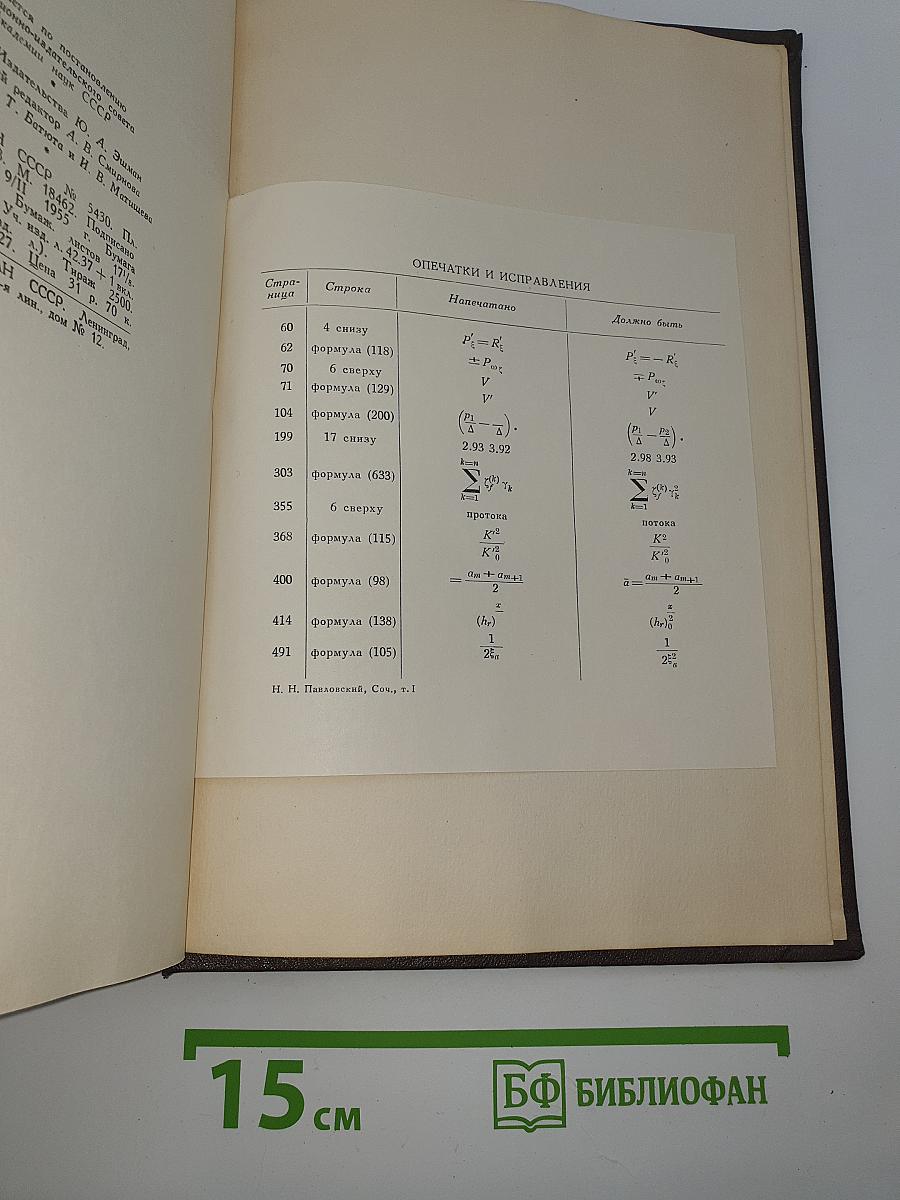 ется по постановлению
ионно-издательского совета
кадемии наук СССР
*
Издательства Ю. А. Эшман
й редактор А. В. Смирнова
Т. Батюта и И. В. Матишева
*
Н СССР № 5430. Пл.
М. 18462. Подписано
9/II 1955 г. Бумага
Бумаж. листов 17¹/₈.
Уч. изд. л. 42.37 + 1 вкл.
л.). Тираж 2500.
27. Цена 31 р. 70 к.
АН СССР. Ленинград,
-я лин., дом № 12.
ОПЕЧАТКИ И ИСПРАВЛЕНИЯ
Стра-ница Строка Напечатано Должно быть
60 4 снизу P′ξ = R′ξ P′ξ = — R′ξ
62 формула (118) ± Pωζ ∓ Pωζ
70 6 сверху V V′
71 формула (129) V′ V
104 формула (200) (p₁/Δ — /Δ). (p₁/Δ — p₂/Δ).
199 17 снизу 2.93 3.92 2.98 3.93
303 формула (633) k=n ∑ k=1 ζf(k) γk k=n ∑ k=1 ζf(k) γk²
355 6 сверху протока потока
368 формула (115) K′²/K′₀² K²/K′₀²
400 формула (98) = (am + am+1)/2 ā = (am + am+1)/2
414 формула (138)
491 формула (105) 1/2ξa 1/2ξa²
Н. Н. Павловский, Соч., т. I
15 см
БФ БИБЛИОФАН